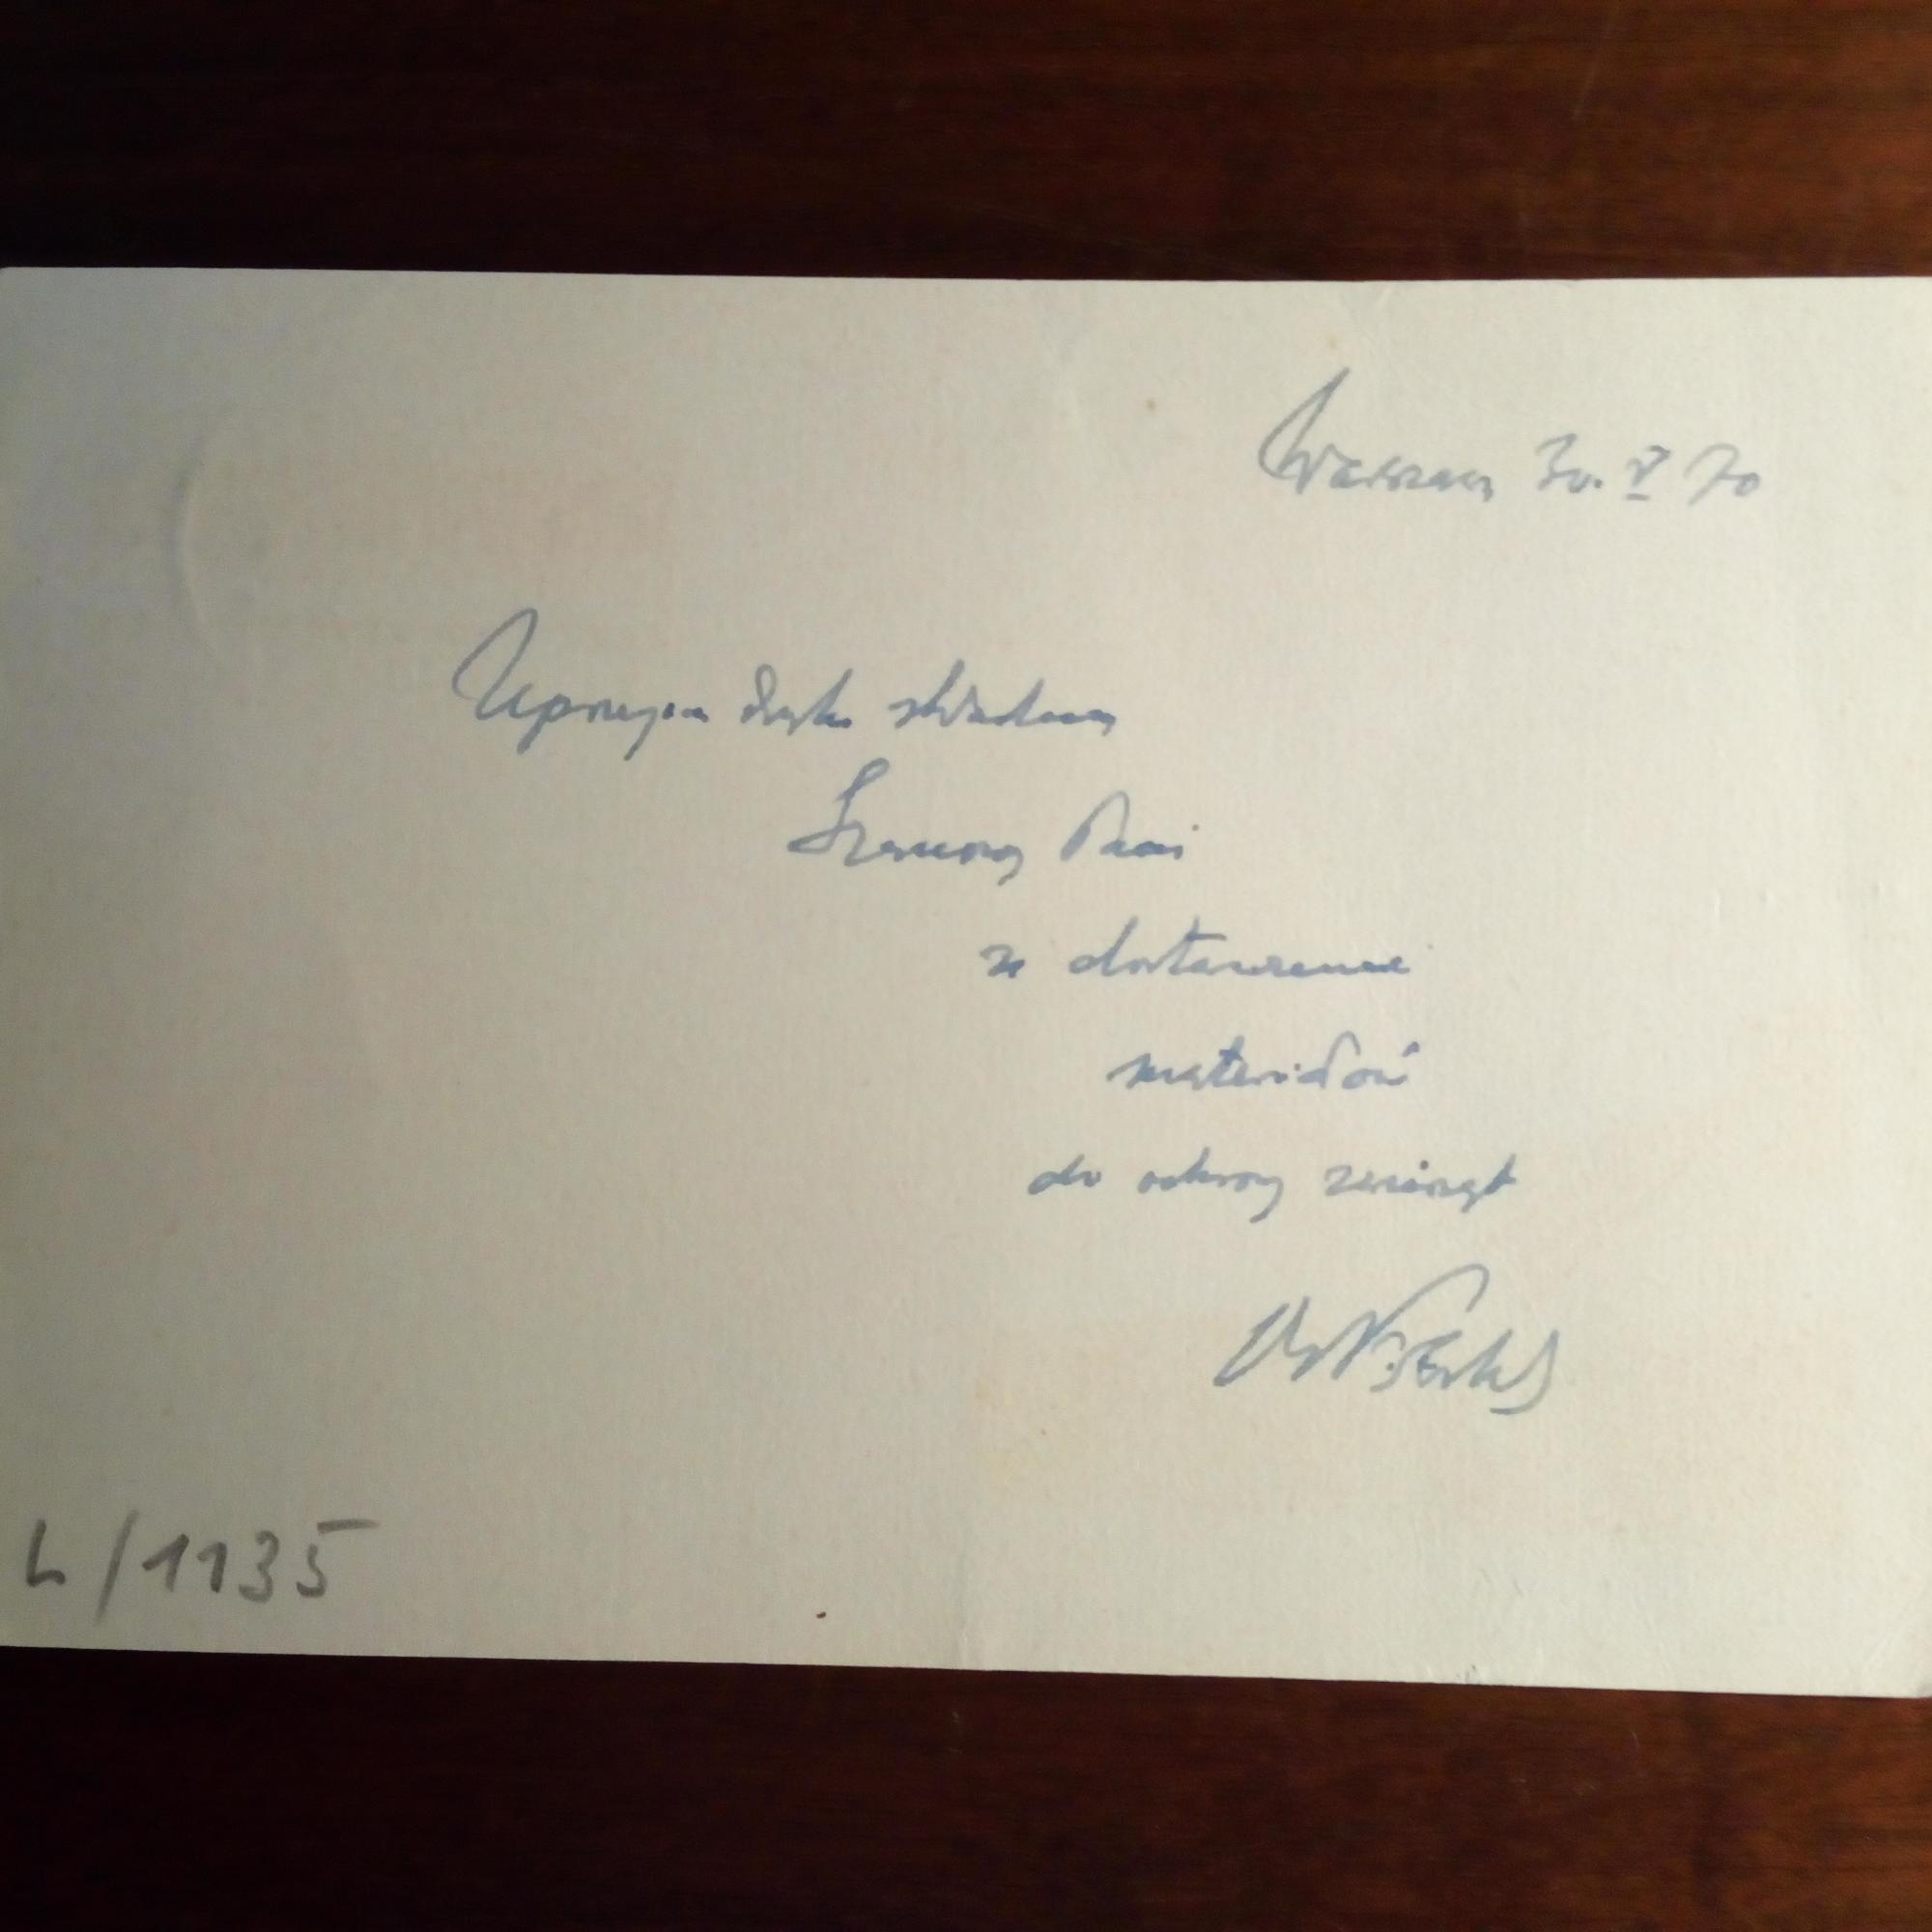 Warszawa 30. V 70
Uprzejme dzięki składam
Szanownej Pani
za dostarczenie
materiałów
do ochrony zwierząt
L/1135